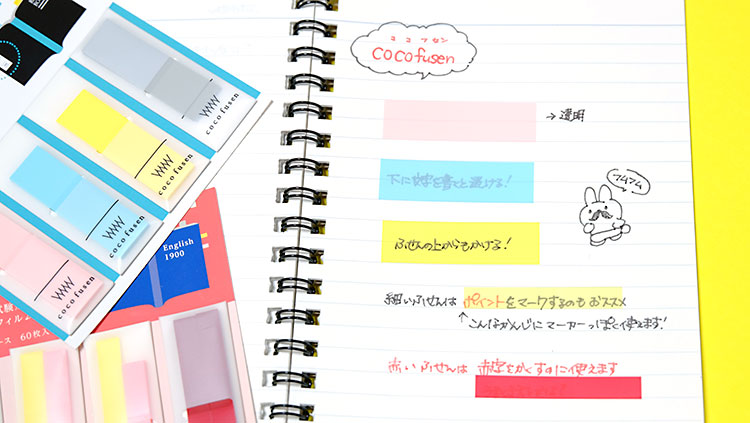 ココフセン
cocofusen
→透明
下に文字を書くと透ける!
マムマム
ふせんの上からもかける!
細いふせんは ポイントをマークするのもおススメ
↑こんなかんじにマーカーっぽく使えます!
赤いふせんは 赤字をかくすのに使えます
coco fusen
coco fusen
coco fusen
coco fusen
English
1900
60枚入